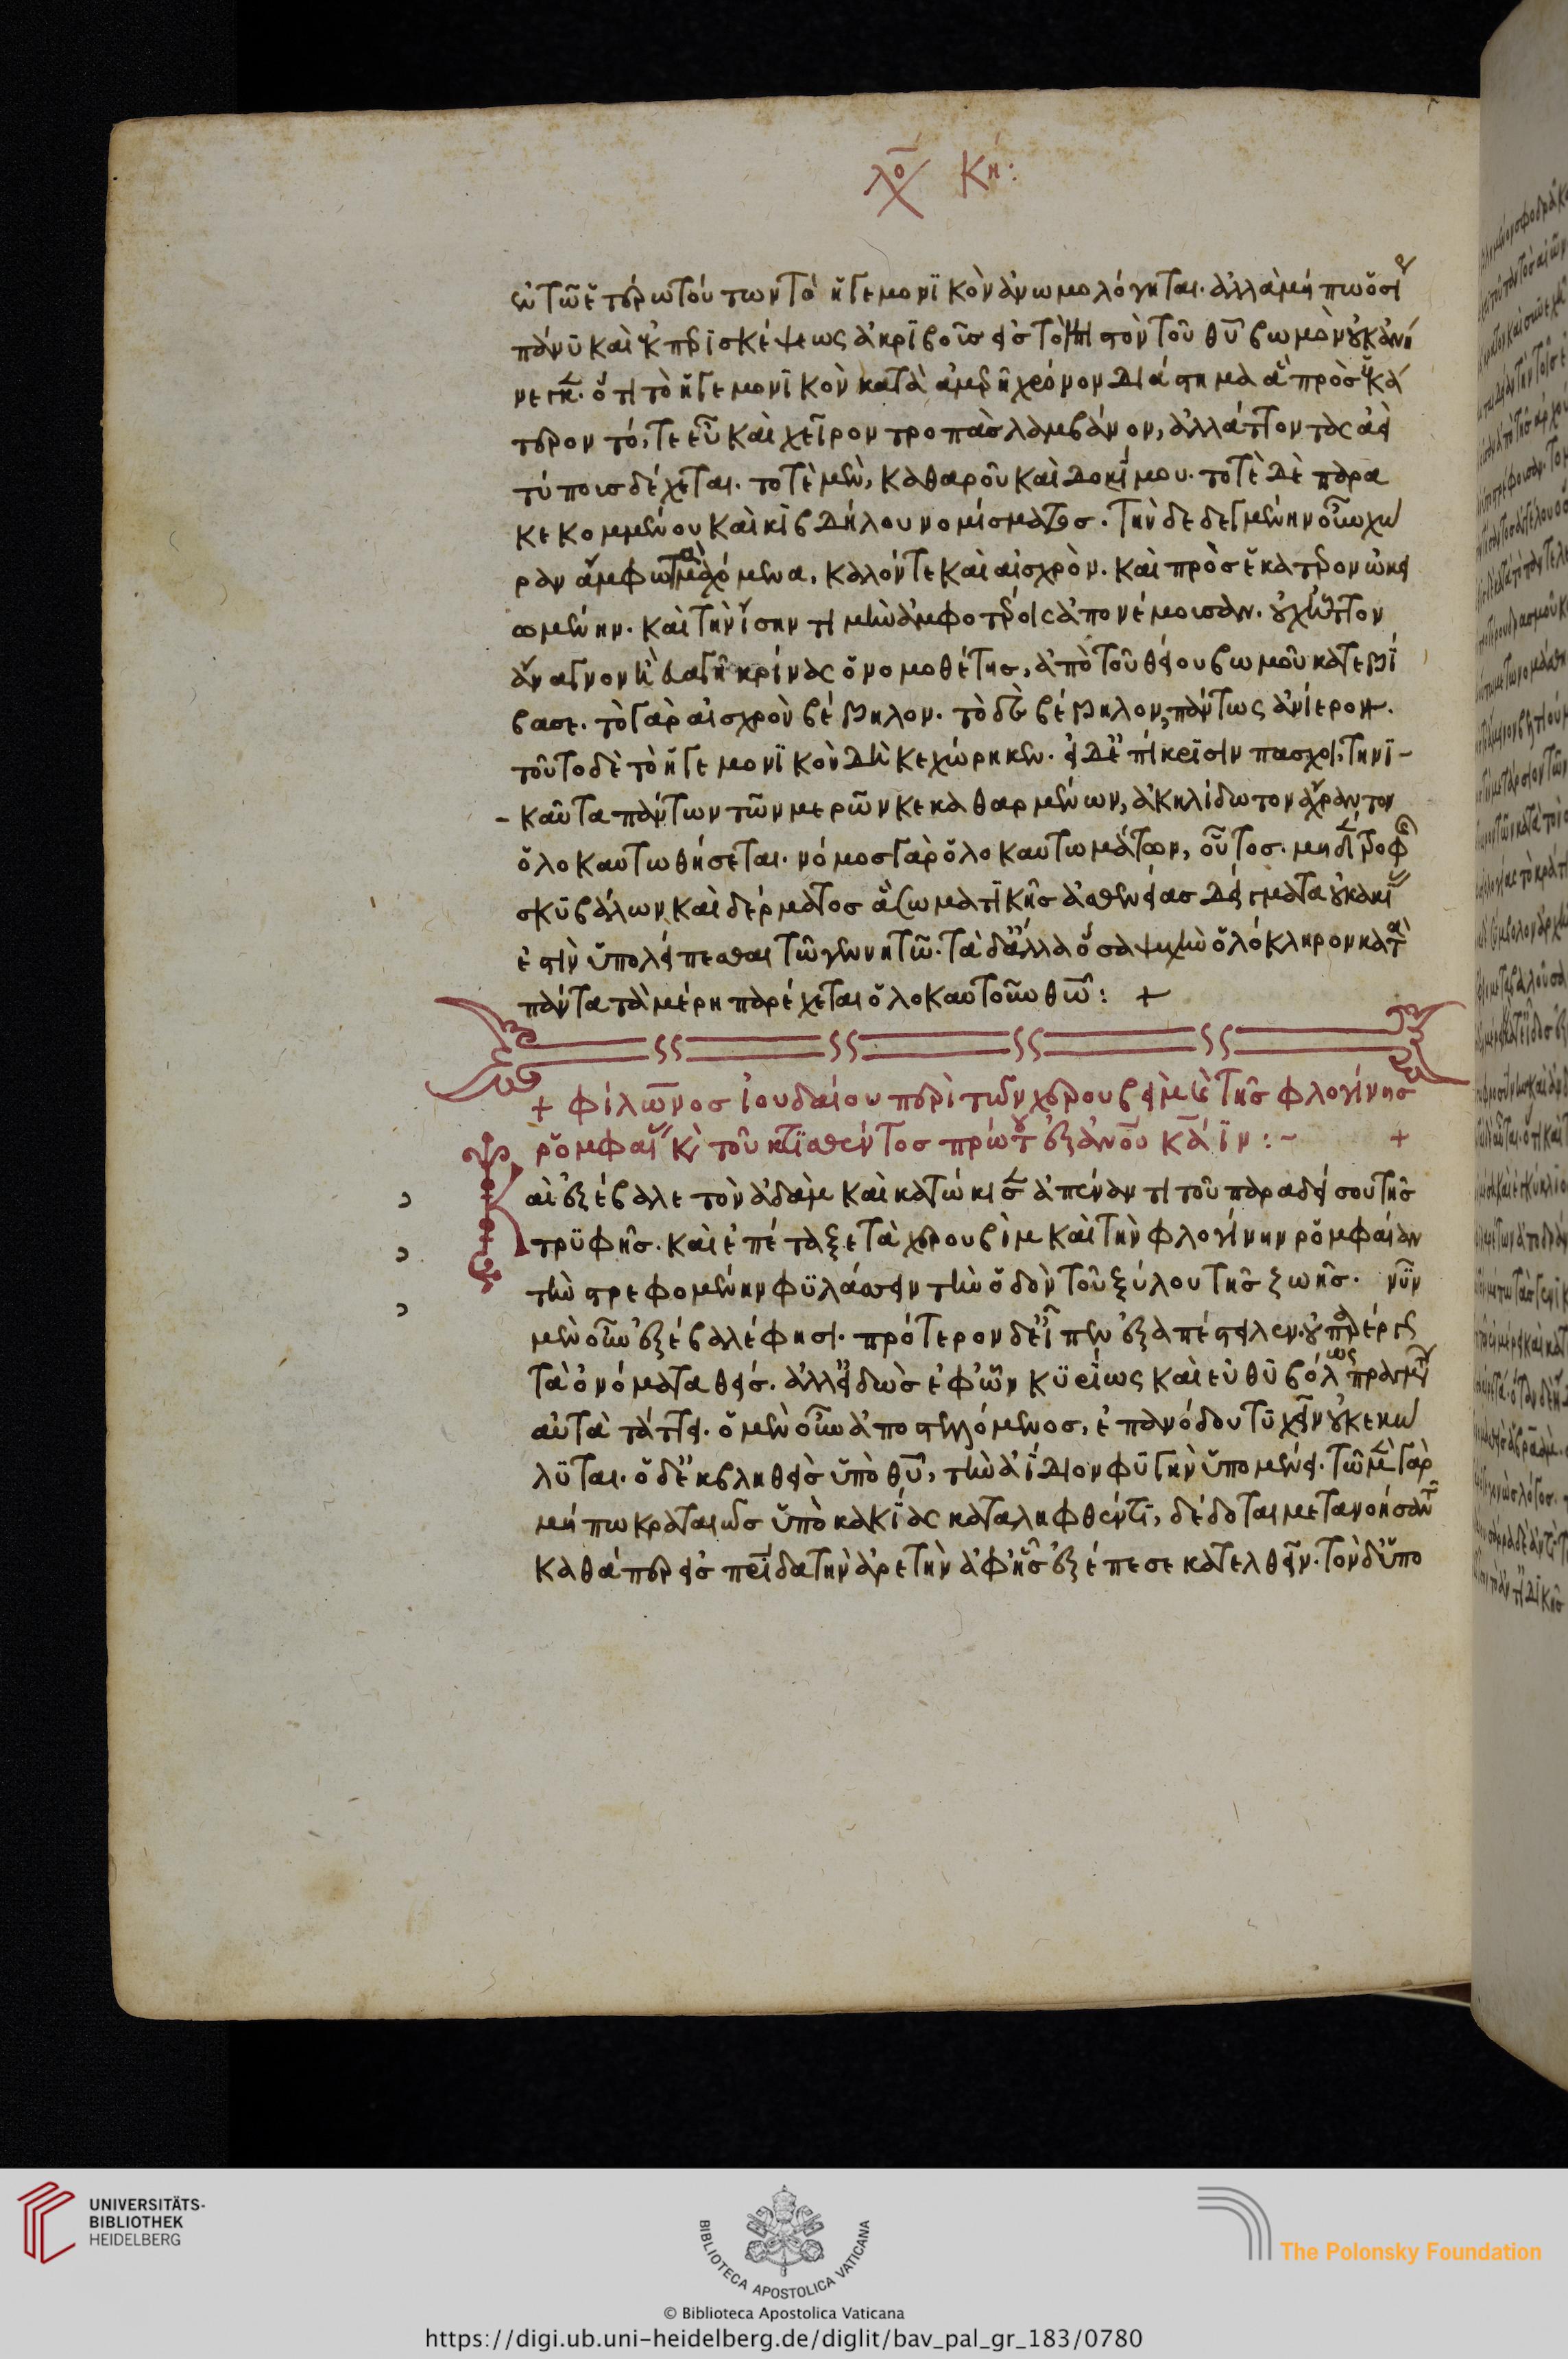 λό χ κη:
ἐν τῶ ἑτέρω τούτων τὸ ἡγεμονικὸν ἀνωμολόγηται. ἀλλὰ μήπω ὅσι
πάνυ καὶ ἐκ περισκέψεως ἀκριβοῦσ εἰσ τὸ τὸν τοῦ θυ βωμὸν οὐκ ἀνή
νεγκ. ὅτι τὸ ἡγεμονικὸν κατὰ ἀμερῆ χρόνον διάστημα ἃ πρὸσ ἑκά
τερον τό, τε εὖ καὶ χεῖρον τροπὰσ λαμβάνον, ἀλλάττοντας ἀεὶ
τύποισ δέχεται. τοτὲ μὲν, καθαροῦ καὶ δοκίμου. τοτὲ δὲ παρα
κεκομμένου καὶ κιβδήλου νομίσματοσ. τὴν δεδεγμένην οὖν χώ
ραν ἄμφω τὰ μαχόμενα, καλόν τε καὶ αἰσχρὸν. καὶ πρὸσ ἑκάτερον ὠκει
ωμένην. καὶ τὴν ἴσην τιμὴν ἀμφοτέροις ἀπονέμοισαν. οὐχ ἧττον
ἄναγνον ἢ εὐαγῆ κρίνας ὁ νομοθέτησ, ἀπὸ τοῦ θείου βωμοῦ κατεβί
βασε. τὸ γὰρ αἰσχρὸν βέβηλον. τὸ δὲ βέβηλον, πάντως ἀνίερον.
τοῦτο δὲ τὸ ἡγεμονικὸν διὸ κεχώρηκεν. εἰ δ' ἐπίκρισιν πασχοι, τηνι-
- καῦτα πάντων τῶν μερῶν κεκαθαρμένων, ἀκηλίδωτον ἄχραντον
ὁλοκαυτωθήσεται. νόμοσ γὰρ ὁλοκαυτωμάτων, οὗτοσ. μηδὲ τροφ
σκυβάλων καὶ δέρματοσ ἃ σωματικῆσ ἀσθενείασ δείγματα οὐ κακί
ἐστὶν ὑπολείπεσθαι τῶ γεννητῶ. τὰ δ' ἄλλα ὅσα ψυχὴν ὁλόκληρον κατὰ
πάντα τὰ μέρη παρέχεται ὁλοκαυτοῦν θῶ: +
+ φίλωνοσ ἰουδαίου περὶ τῶν χερουβεὶμ καὶ τῆσ φλογίνησ
ῥομφαί καὶ τοῦ κτισθέντοσ πρώτου ἐξ ἀνου κάϊν: ~ +
Καὶ ἐξέβαλε τὸν ἀδὰμ καὶ κατώκισ ἀπέναντι τοῦ παραδείσου τῆσ
τρυφῆσ. καὶ ἐπέταξε τὰ χερουβὶμ καὶ τὴν φλογίνην ῥομφαίαν
τὴν στρεφομένην φυλάσσειν τὴν ὁδὸν τοῦ ξύλου τῆσ ζωῆσ. νῦν
μὲν οὖν ἐξέβαλέ φησι. πρότερον δὲ εἶπεν ἐξαπέστειλεν. οὐ παρέργως
τὰ ὀνόματα θείσ. ἀλλ' εἰδὼσ ἐφ' ὧν κυρίως καὶ εὐθυβόλως πραγμ
αὐτὰ τάττει. ὁ μὲν οὖν ἀποστελλόμενοσ, ἐπανόδου τυχεῖν οὐ κεκώ
λυται. ὁ δ' ἐκβληθεὶσ ὑπὸ θυ, τὴν ἀΐδιον φυγὴν ὑπομένει. τῶ μὲν γὰρ
μήπω κραταιῶσ ὑπὸ κακίας καταληφθέντι, δέδοται μετανοήσαντ
καθάπερ εἰσ πατρίδα τὴν ἀρετὴν ἀφ' ἧσ ἐξέπεσε κατελθεῖν. τὸν δ' ὑπο
UNIVERSITÄTS-
BIBLIOTHEK
HEIDELBERG
BIBLIOTECA APOSTOLICA VATICANA
The Polonsky Foundation
© Biblioteca Apostolica Vaticana
https://digi.ub.uni-heidelberg.de/diglit/bav_pal_gr_183/0780